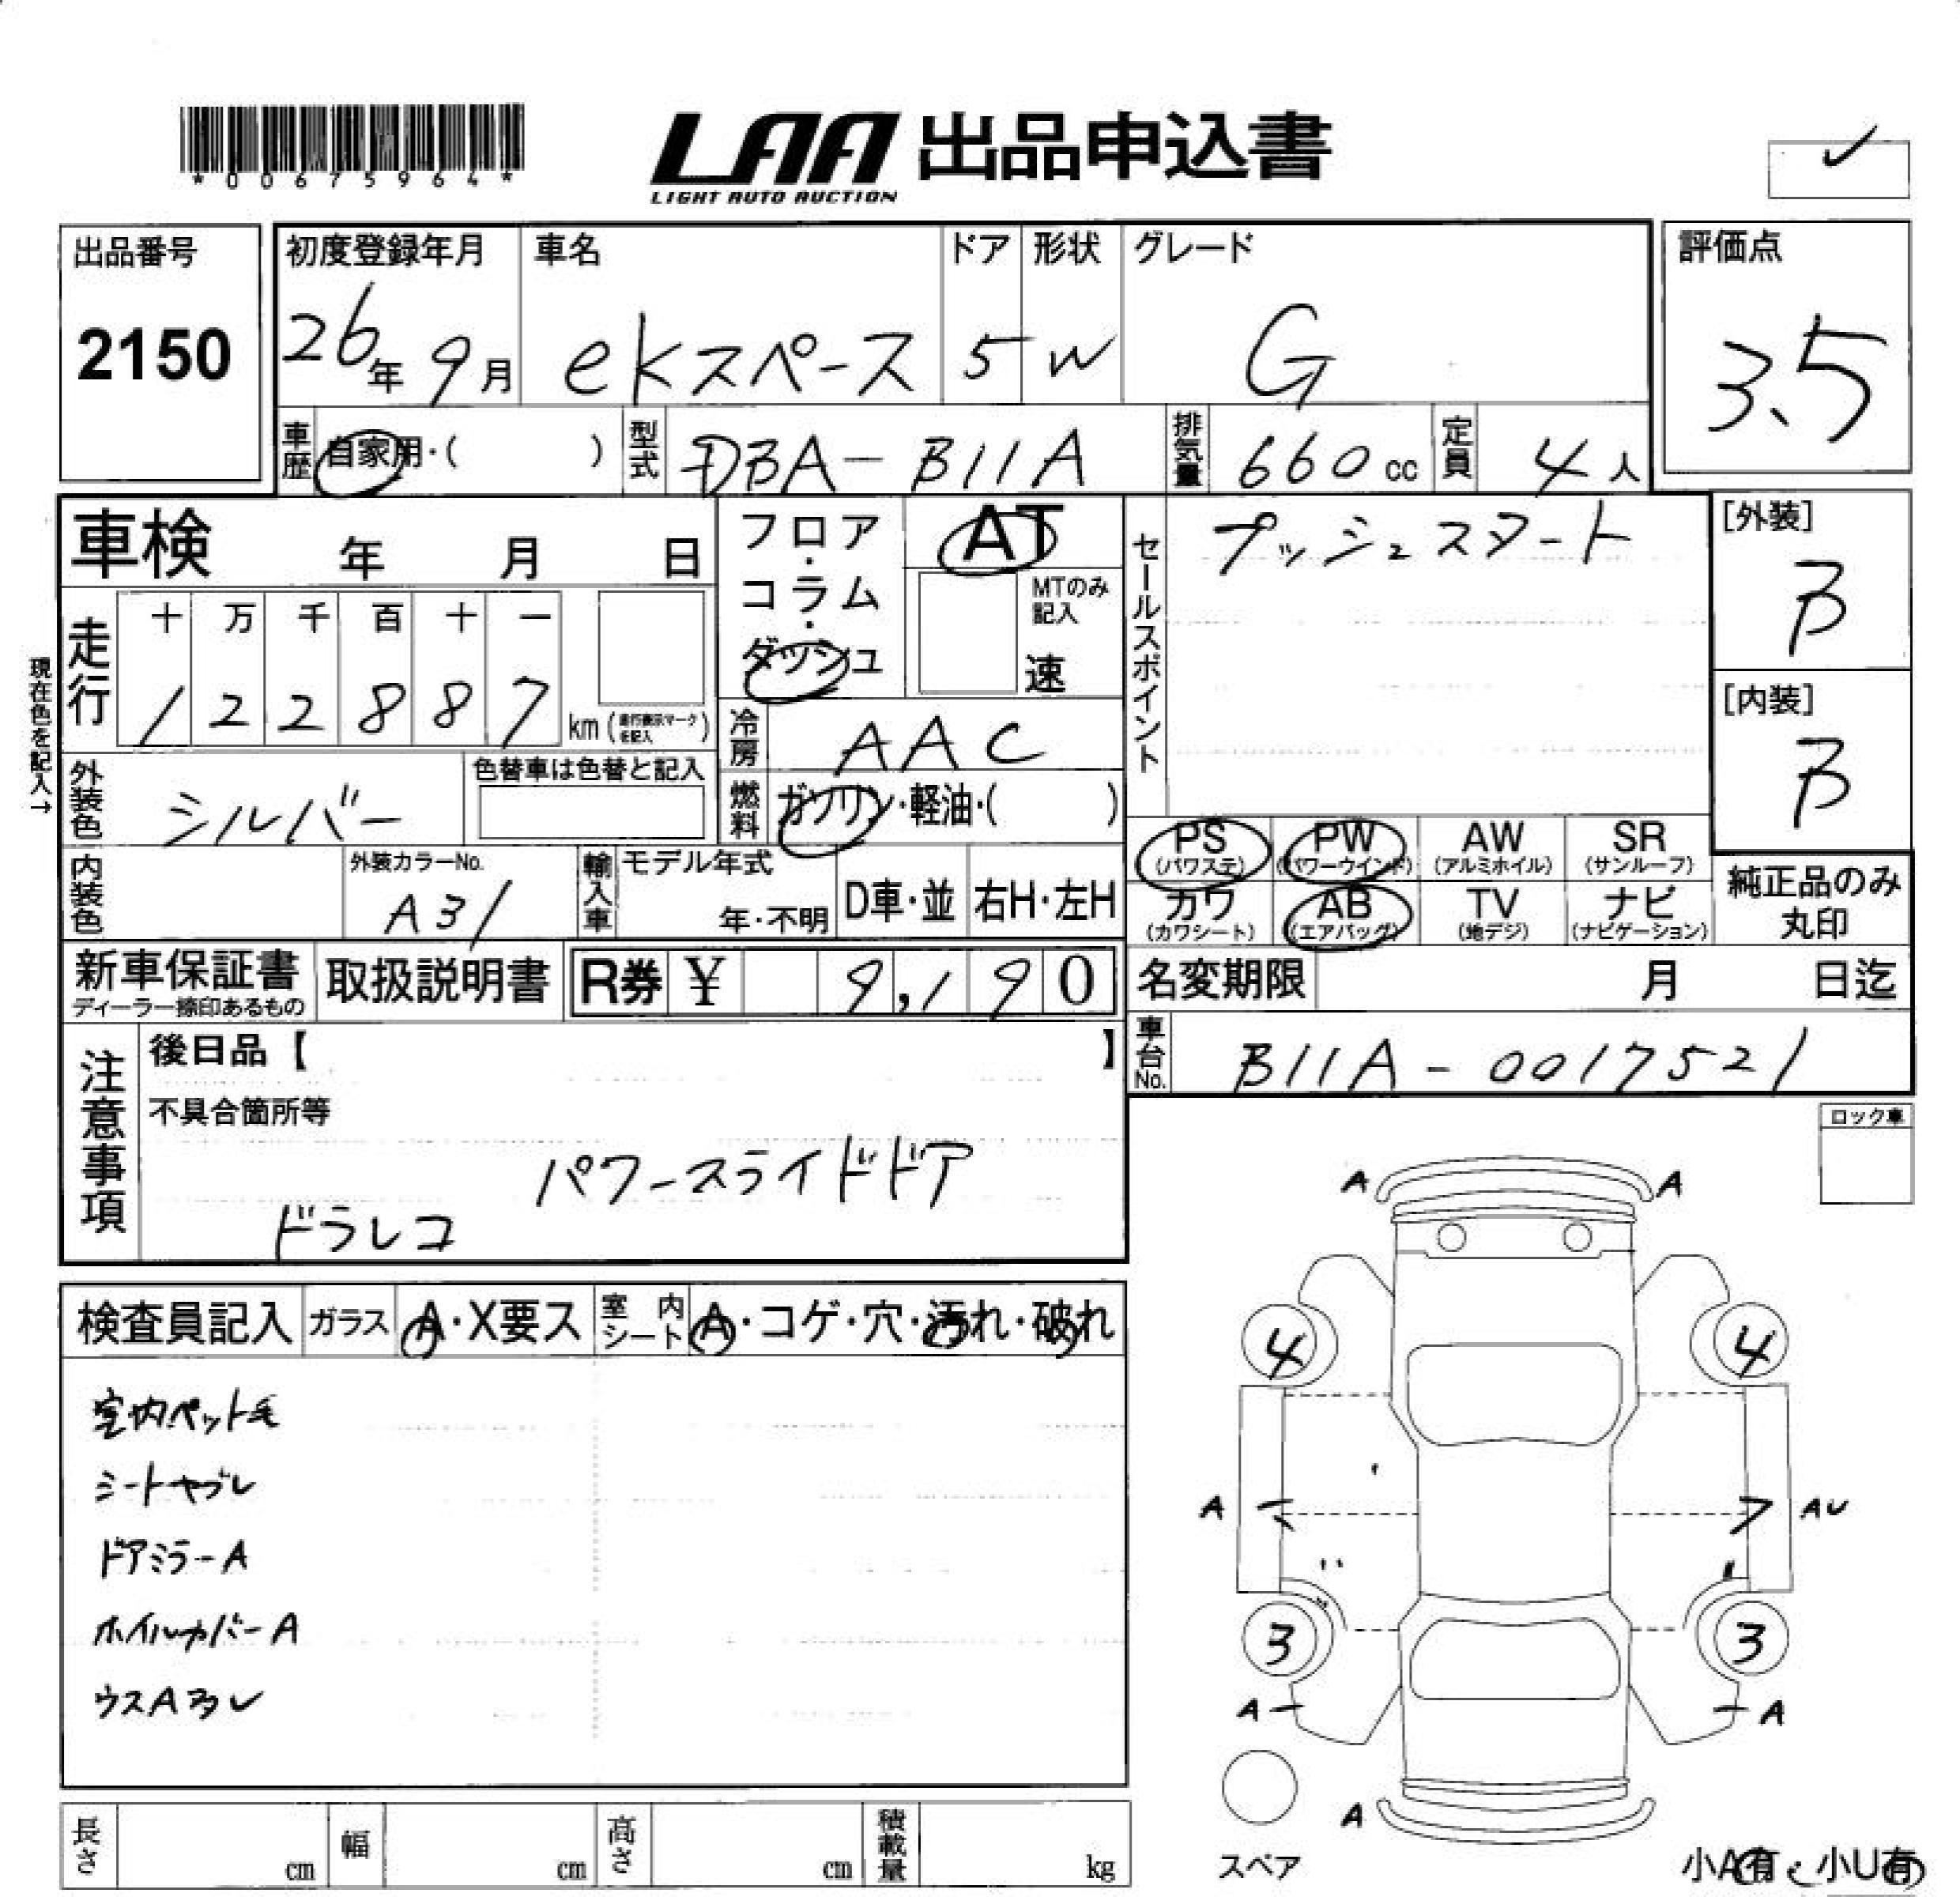 *00675964*
LAA 出品申込書
LIGHT AUTO AUCTION
出品番号 2150
初度登録年月 26年 9月
車名 ekスペース
ドア 5
形状 W
グレード G
評価点 3.5
車歴 自家用・( )
型式 DBA-B11A
排気量 660cc
定員 4人
車検 年 月 日
フロア・コラム・ダッシュ
AT
MTのみ記入
速
セールスポイント プッシュスタート
[外装] B
現在色を記入→
走行 十 万 千 百 十 一
1 2 2 8 8 7 km (走行表示マークを記入)
冷房 AAC
[内装] B
外装色 シルバー
色替車は色替と記入
燃料 ガソリン・軽油・( )
PS (パワステ) PW (パワーウインド) AW (アルミホイル) SR (サンルーフ)
内装色
外装カラーNo. A31
輸入車 モデル年式 年・不明 D車・並 右H・左H
カワ (カワシート) AB (エアバッグ) TV (地デジ) ナビ (ナビゲーション)
純正品のみ丸印
新車保証書 ディーラー捺印あるもの
取扱説明書
R券 ¥ 9,190
名変期限 月 日迄
車台No. B11A-0017521
注意事項
後日品【 】
不具合箇所等
パワースライドドア
ドラレコ
ロック車
検査員記入 ガラス A・X要ス 室内シート A・コゲ・穴・汚れ・破れ
室内ペット毛
シートヤブレ
ドアミラーA
ホイルカバーA
ウスA多し
A A
4 4
A AU
3 3
A A
A
スペア
小A有・小U有
長さ cm 幅 cm 高さ cm 積載量 kg